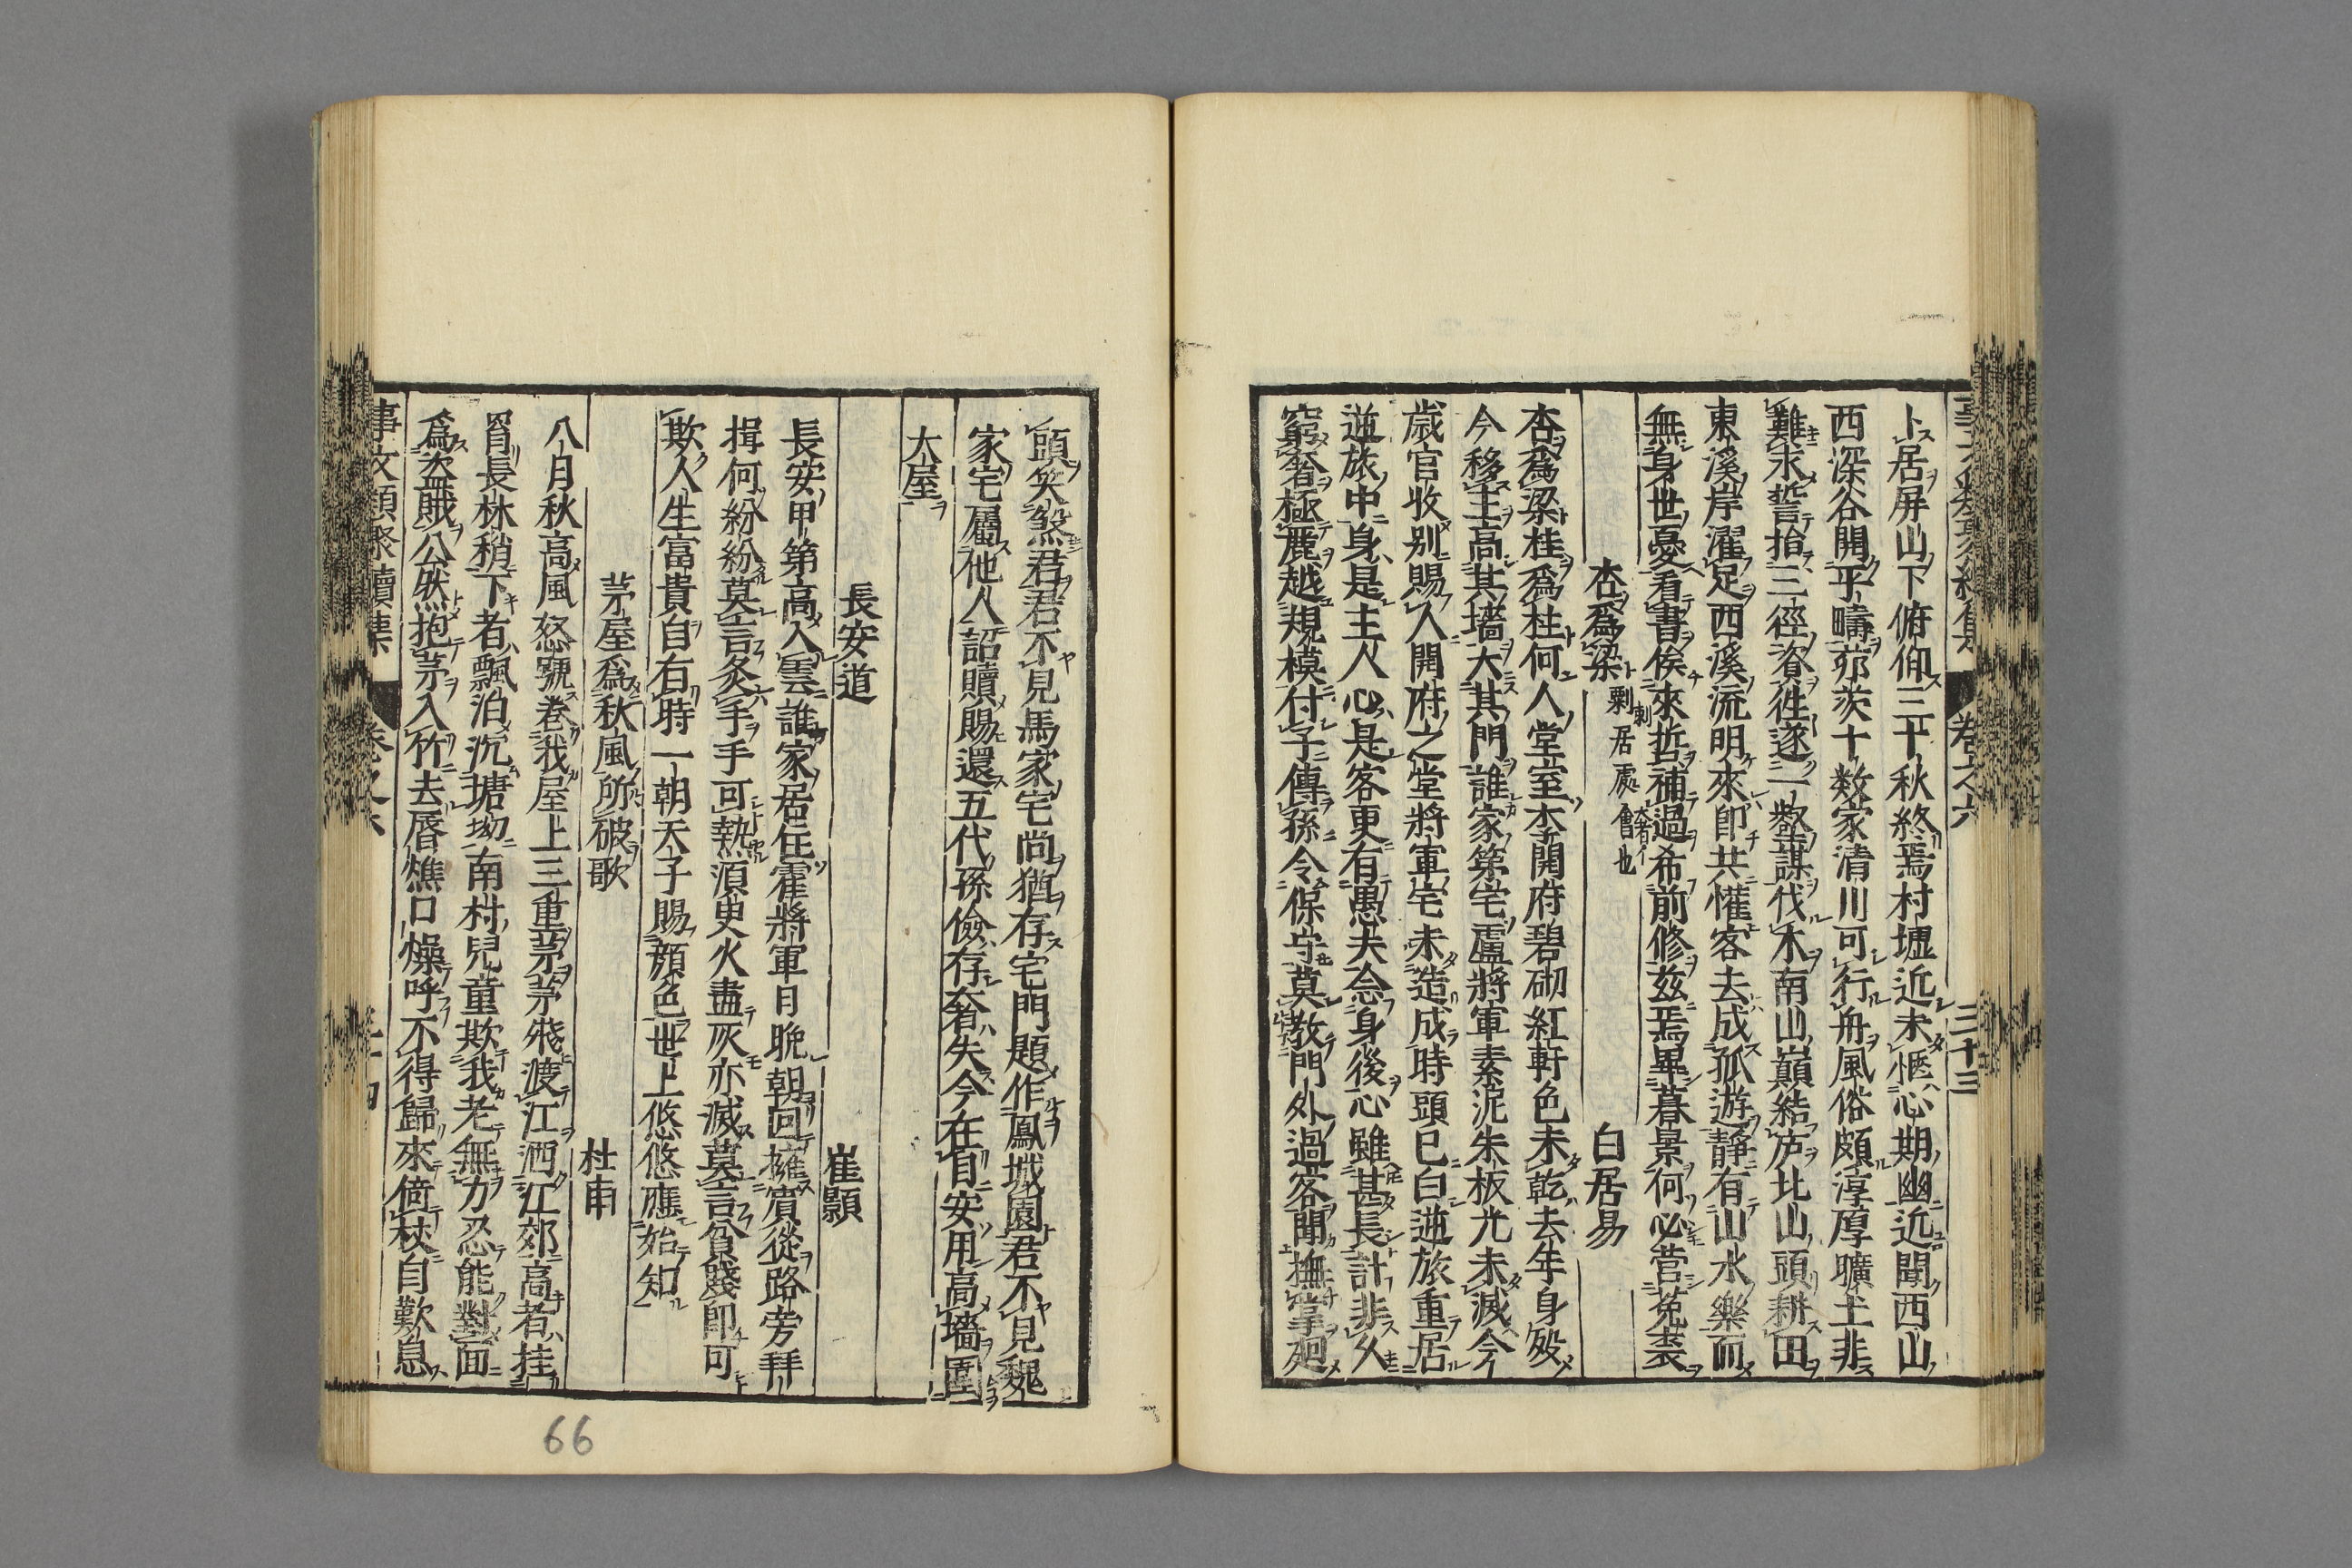 卜居屏山下俯仰三十秋終焉村墟近未愜心期幽近聞西山
西深谷開平疇茆茨十數家清川可行舟風俗頗淳厚曠土非
難求誓拾三徑資徃遂一壑謀伐木南山巓結庐北山頭耕田
東溪岸濯足西溪流明來即共懽客去成孤遊靜有山水樂而
無身世憂看書俟來哲補過希前修茲焉畢暮景何必營菟裘
杏爲梁 剌居處奢也 白居易
杏爲梁桂爲柱何人堂室李開府碧砌紅軒色未乾去年身歿
今移主高其墻大其門誰家第宅盧將軍素泥朱板光未滅今
歳官收别賜人開府之堂將軍宅未造成時頭已白逆旅重居
逆旅中身是主人心是客更有愚夫念身後心雖甚長計非久
窮奢極麗越規模付子傳孫令保守莫教門外過客聞撫掌廻
頭笑煞君君不見馬家宅尚猶存宅門題作鳳城園君不見魏
家宅屬他人詔贖賜還五代孫儉存奢失今在目安用高墻圍
大屋
長安道 崔顥
長安甲第高入雲誰家居住霍將軍日晚朝回擁賓從路旁拜
揖何紛紛莫言炙手手可熱須臾火盡灰亦滅莫言貧賤即可
欺人生富貴自有時一朝天子賜顔色世上悠悠應始知
茅屋爲秋風所破歌 杜甫
八月秋高風怒號卷我屋上三重茅茅飛渡江洒江郊高者挂
罥長林稍下者飄泊沉塘坳南村兒童欺我老無力忍能對面
爲盗賊公然抱茅入竹去唇燋口燥呼不得歸來倚杖自歎息
事文類聚續集 卷之六
66